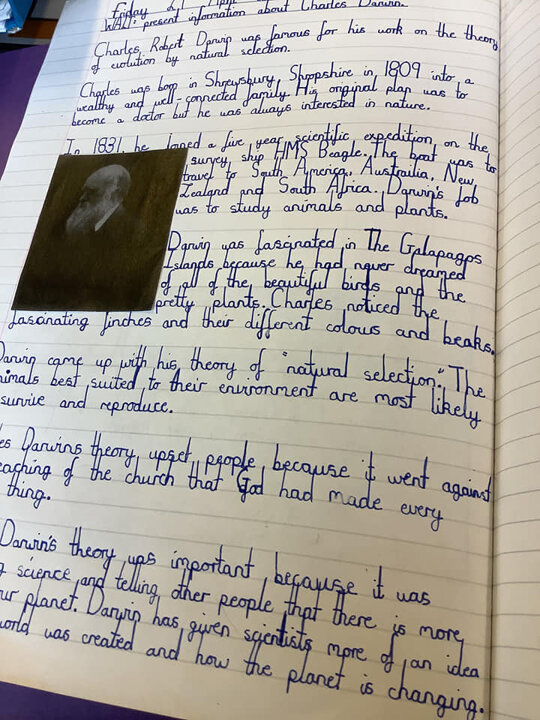 Friday
WALT: present information about Charles Darwin.
Charles Robert Darwin was famous for his work on the theory
of evolution by natural selection.
Charles was born in Shrewsbury, Shropshire in 1809 into a
wealthy and well-connected family. His original plan was to
become a doctor but he was always interested in nature.
In 1831, he joined a five year scientific expedition on the
survey ship HMS Beagle. The boat was to
travel to South America, Austrailia, New
Zealand and South Africa. Darwin's Job
was to study animals and plants.
Darwin was fascinated in The Galapagos
Islands because he had never dreamed
of all of the beautiful birds and the
pretty plants. Charles noticed the
fascinating finches and their different colours and beaks.
Darwin came up with his theory of "natural selection." The
nimals best suited to their environment are most likely
survive and reproduce.
es Darwins theory upset people because it went against
eaching of the church that God had made every
thing.
Darwin's theory was important because it was
g science and telling other people that there is more
ur planet. Darwin has given scientists more of an idea
world was created and how the planet is changing.